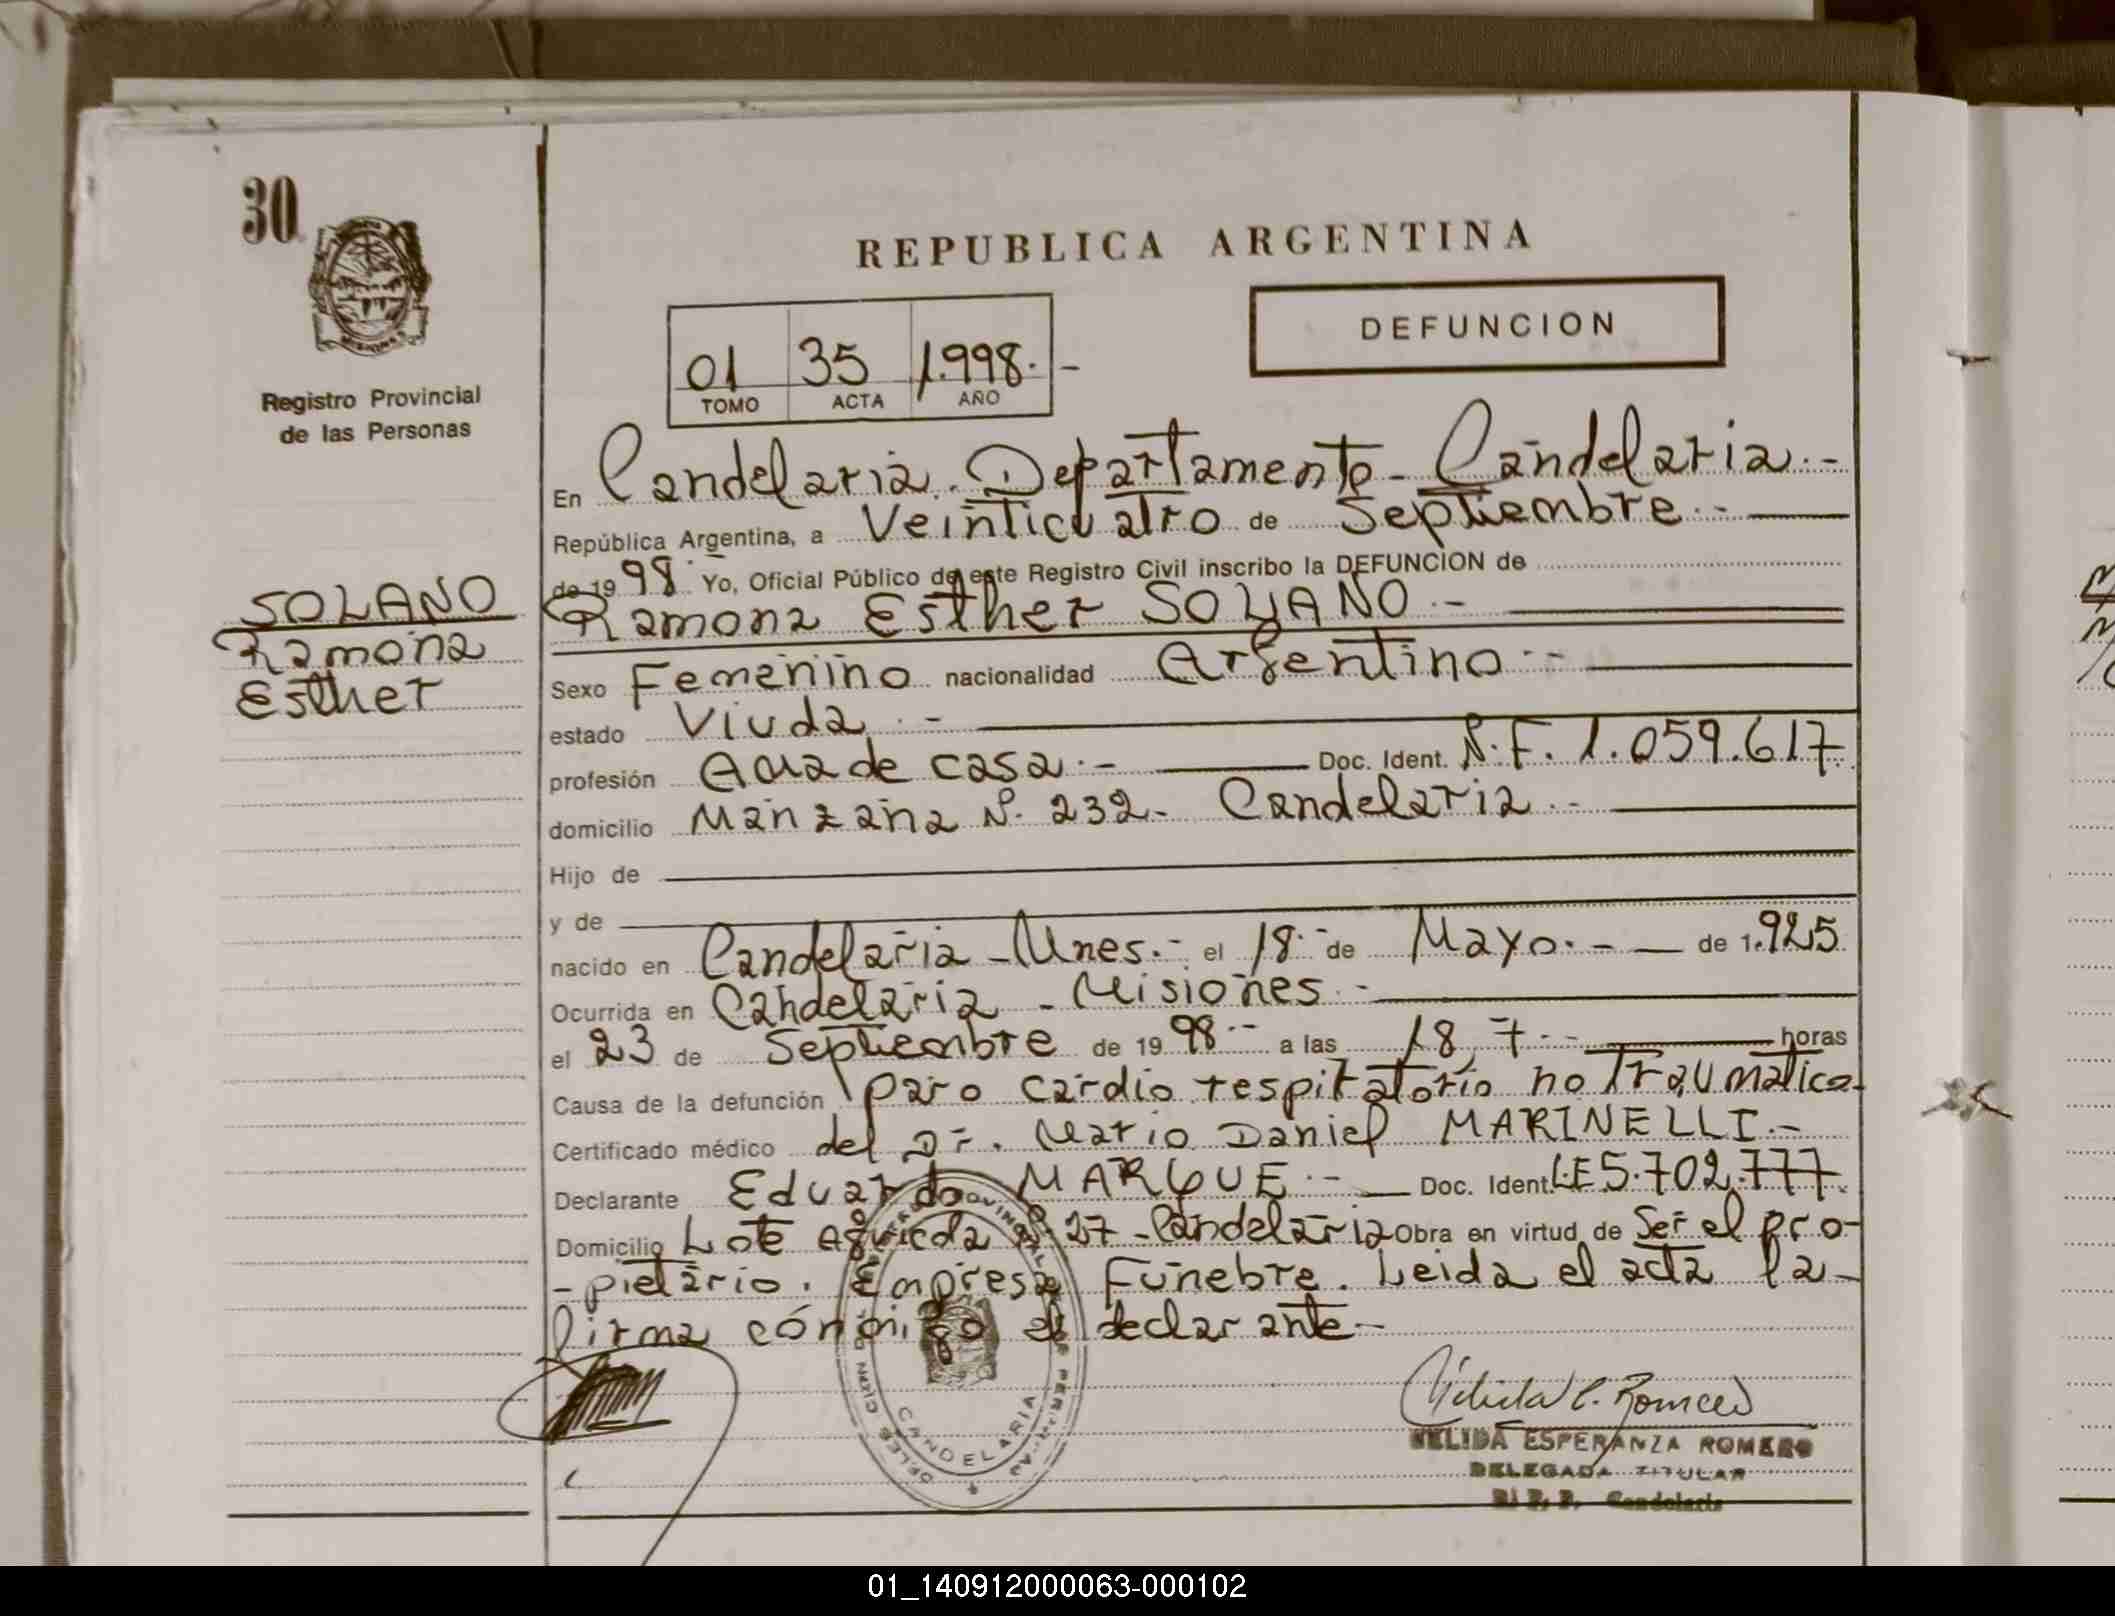 30
Registro Provincial
de las Personas
SOLANO
Ramona
Esther
REPUBLICA ARGENTINA
DEFUNCION
01 35 1.998.-
TOMO ACTA AÑO
En Candelaria. Departamento - Candelaria.-
República Argentina, a Veinticuatro de Septiembre.-
de 1998. Yo, Oficial Público de este Registro Civil inscribo la DEFUNCION de
Ramona Esther SOLANO.-
Sexo Femenino nacionalidad Argentino.-
estado Viuda.-
profesión Ama de casa.- Doc. Ident. N.F. 1.059.617.
domicilio Manzana N. 232- Candelaria.-
Hijo de
y de
nacido en Candelaria - Mnes.- el 18.- de Mayo.- de 1.925
Ocurrida en Candelaria - Misiones.-
el 23 de Septiembre de 1998.- a las 18,7.- horas
Causa de la defunción paro cardio respiratorio no Traumatica-
Certificado médico del Dr. Mario Daniel MARINELLI.-
Declarante Eduardo MARQUE.- Doc. Ident. L.E 5.702.777.
Domicilio Lote Agricola 27 - Candelaria Obra en virtud de Ser el pro-
-pietario. Empresa Funebre. Leida el acta la-
firma conmigo el declarante-
CANDELARIA
NELIDA ESPERANZA ROMERO
DELEGADA TITULAR
R. P. P. Candelaria
01_140912000063-000102